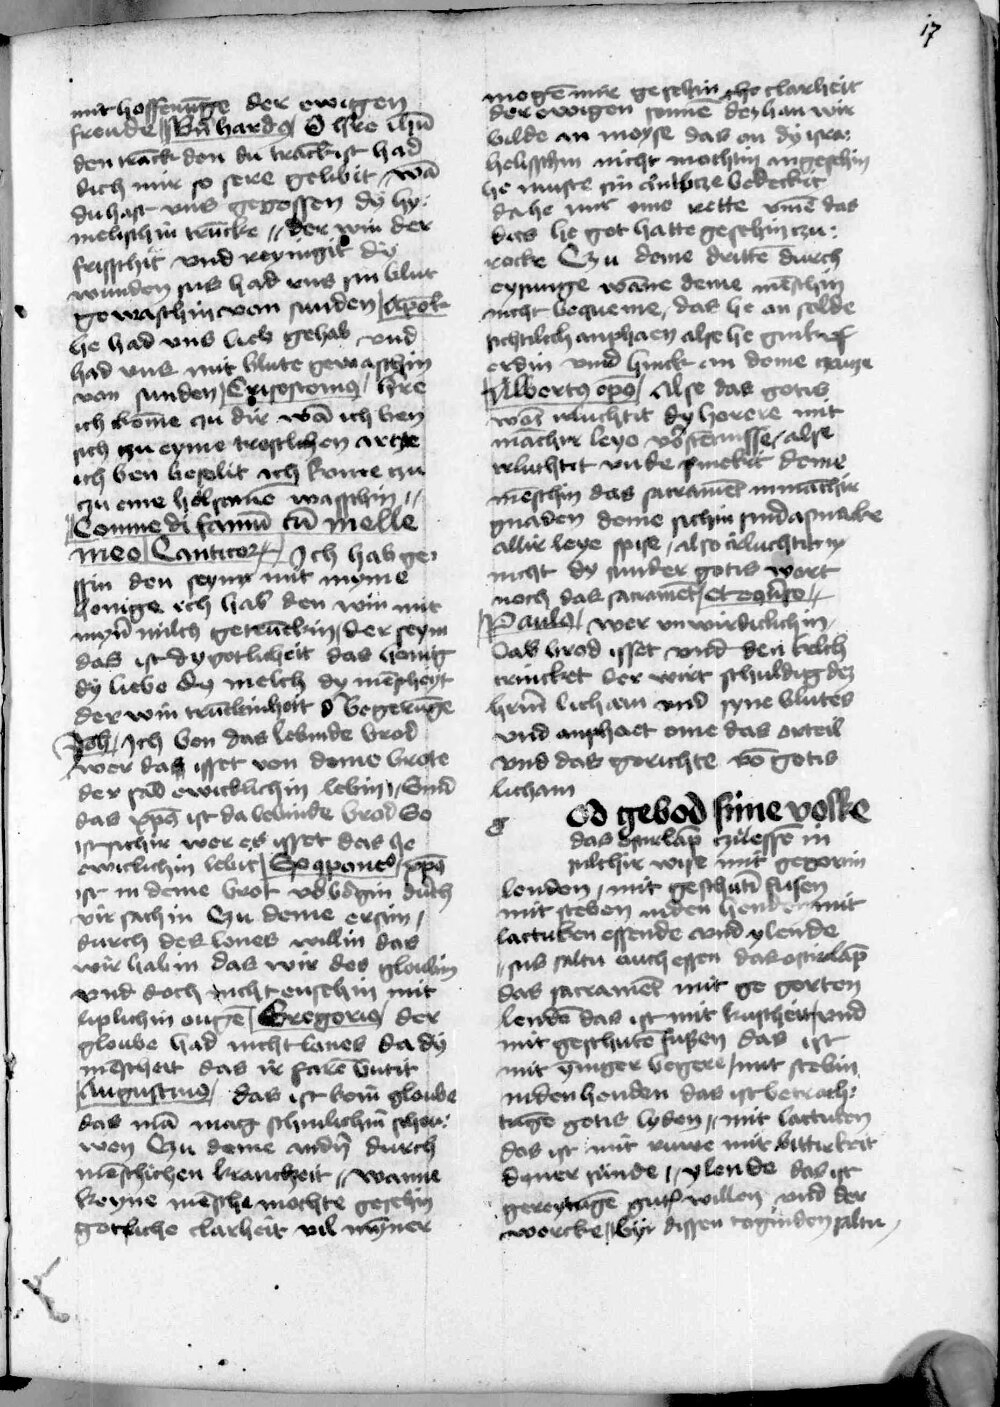 17
mit hoffenūge der ewigen
freude Bn̄hardꝰ O h're ihū
den tranck den du tranckist had
dich mir so sere gelibit / wā
du hast vns gegossen dy hy:
melischin trūcke // der win der
frisschit vnd reynigit dy
wunden sus had vns sin blut
gewasschin von sunden Apok
he had vns lieb gehab vnd
had vns mit blute gewasschin
von sunden Crisostomꝰ h're
ich kome zu dir wā ich ben
sich zu eyme trostlichen artze
ich ben besolit ich kome zu
zu eme wasschin //
Comme di fauū cū melle
meo Canticoꝝ Ich hab ge:
ssin den seym mit myme
honige ich hab den win mit
myn̄ milch getrūckin / der seym
das ist dy gotlicheit das honig
dy liebe dy melch dy mēscheyt
der win trūckinheit d' begerūge
Joh Ich ben das lebinde brod
wer das isset von deme brote
der sal ewicklichin lebin / Sind
das xp̄s ist da lebinde brod So
ist sichir wer es isset das he
ewiclichin lebit xp̄s
ist in deme brot vorborgin durch
vir sachin Czu deme ersten /
durch des lones willin das
wir habin das wir des gloubin
vnd doch nicht ensehin mit
liplichin ougē Gregoriꝰ der
gloube had nicht lones da dy
mēscheit das ir farē butit
Augustinꝰ das ist kein gloube
das mā mag schinlichin schou:
wen Czu deme andn̄ durch
mēschlichen kranckheit // wanne
keyne mēsche mochte gesehin
gotliche clarheit vil myner
mogē wir gesehin the clarheit
der ewigen sonnē des han wir
bilde an moyse das en dy isra:
helisschin nicht mochtin angesehin
he muste sin antlitze bedeckit
da he mit ene rette vmē das
das he got hatte gesehin zu:
rocke Czu deme drittē durch
eysunge wāne deme mēschin
nicht bequeme, das he en solde
sichtlich anphaen alse he ginc vf
erdin vnd hinck an deme cruze
Albertꝰ ep̄s Alse das gotis
wort irluchtit dy horere mit
mācher leye vorstentnisse / alse
irluchtit vnde smeckit deme
mēschin das sacramēt in mācher
gnaden deme sichin sind a smake
allir leye spise / also irluchtit
nicht dy sunder gotis wort
noch das sacramēt
Paulꝰ / wer vnwirdiclichin
das brod isset vnd den kelch
trincket der wirt schuldig des
hrn̄ licham vnd syne blutes
vnd anphaet eme das orteil
vnd das gerichte vō gotis
licham
g od gebod sime volke
das osterlāp zu essē in
sulchir wise mit gegortin
lenden, mit geschutē fusen
mit steben in den henden mit
lactuken essende vnd ylende
// sus saltu auch essen das ostirlāp
das sacramēt mit ge gorten
lendē das ist mit kuscheit / vnd
mit geschutē fussen das ist
mit begere / mit stebin
in den henden das ist betrach:
tūge gotis lyden // mit lactuken
das ist mit ruwe mit bittirkeit
dyner sunde // ylende das ist
gereytūge gutꝭ willen vnd der
wercke // byr dissen toginden saltu